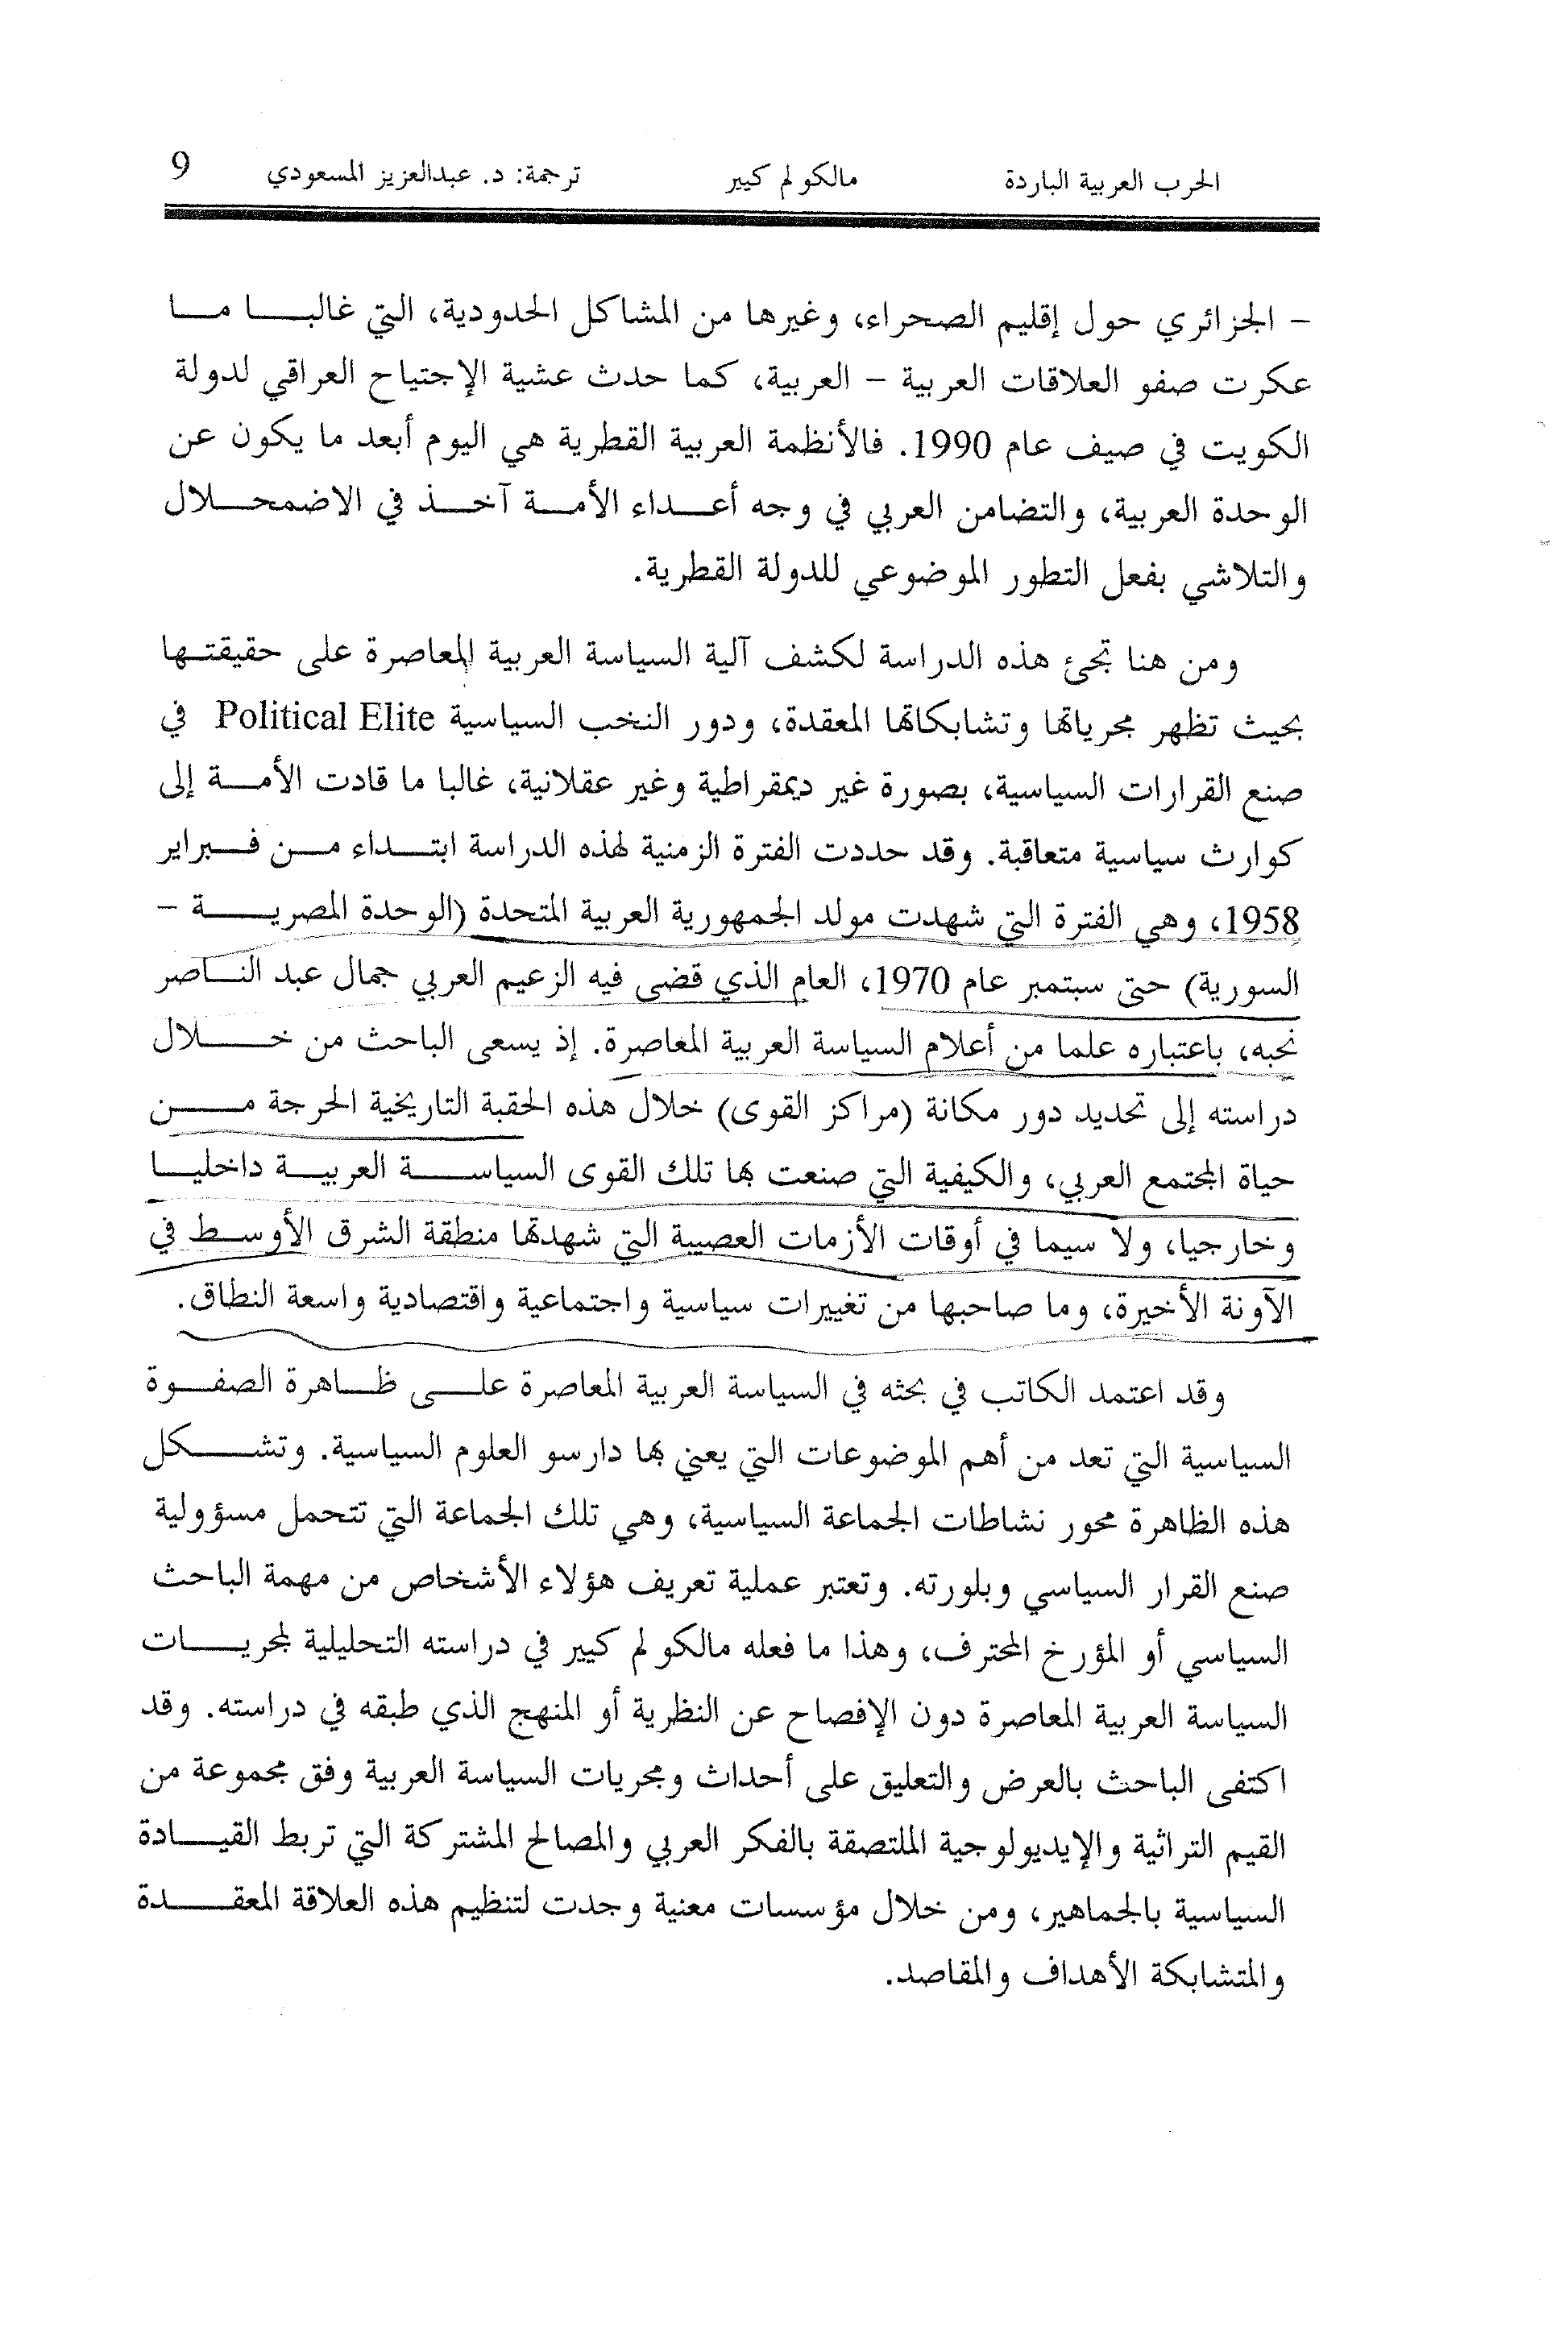 الحرب العربية الباردة مالكولم كيير ترجمة: د. عبدالعزيز المسعودي 9
- الجزائري حول إقليم الصحراء، وغيرها من المشاكل الحدودية، التي غالبا ما
عكرت صفو العلاقات العربية - العربية، كما حدث عشية الإجتياح العراقي لدولة
الكويت في صيف عام 1990. فالأنظمة العربية القطرية هي اليوم أبعد ما يكون عن
الوحدة العربية، والتضامن العربي في وجه أعداء الأمة آخذ في الاضمحلال
والتلاشي بفعل التطور الموضوعي للدولة القطرية.
ومن هنا تجئ هذه الدراسة لكشف آلية السياسة العربية المعاصرة على حقيقتها
بحيث تظهر مجرياتها وتشابكاتها المعقدة، ودور النخب السياسية Political Elite في
صنع القرارات السياسية، بصورة غير ديمقراطية وغير عقلانية، غالبا ما قادت الأمة إلى
كوارث سياسية متعاقبة. وقد حددت الفترة الزمنية لهذه الدراسة ابتداء من فبراير
1958، وهي الفترة التي شهدت مولد الجمهورية العربية المتحدة (الوحدة المصرية -
السورية) حتى سبتمبر عام 1970، العام الذي قضى فيه الزعيم العربي جمال عبد الناصر
نحبه، باعتباره علما من أعلام السياسة العربية المعاصرة. إذ يسعى الباحث من خلال
دراسته إلى تحديد دور مكانة (مراكز القوى) خلال هذه الحقبة التاريخية الحرجة من
حياة المجتمع العربي، والكيفية التي صنعت بها تلك القوى السياسة العربية داخليا
وخارجيا، ولا سيما في أوقات الأزمات العصيبة التي شهدتها منطقة الشرق الأوسط في
الآونة الأخيرة، وما صاحبها من تغييرات سياسية واجتماعية واقتصادية واسعة النطاق.
وقد اعتمد الكاتب في بحثه في السياسة العربية المعاصرة على ظاهرة الصفوة
السياسية التي تعد من أهم الموضوعات التي يعني بها دارسو العلوم السياسية. وتشكل
هذه الظاهرة محور نشاطات الجماعة السياسية، وهي تلك الجماعة التي تتحمل مسؤولية
صنع القرار السياسي وبلورته. وتعتبر عملية تعريف هؤلاء الأشخاص من مهمة الباحث
السياسي أو المؤرخ المحترف، وهذا ما فعله مالكولم كيير في دراسته التحليلية لمجريات
السياسة العربية المعاصرة دون الإفصاح عن النظرية أو المنهج الذي طبقه في دراسته. وقد
اكتفى الباحث بالعرض والتعليق على أحداث ومجريات السياسة العربية وفق مجموعة من
القيم التراثية والإيديولوجية الملتصقة بالفكر العربي والمصالح المشتركة التي تربط القيادة
السياسية بالجماهير، ومن خلال مؤسسات معنية وجدت لتنظيم هذه العلاقة المعقدة
والمتشابكة الأهداف والمقاصد.